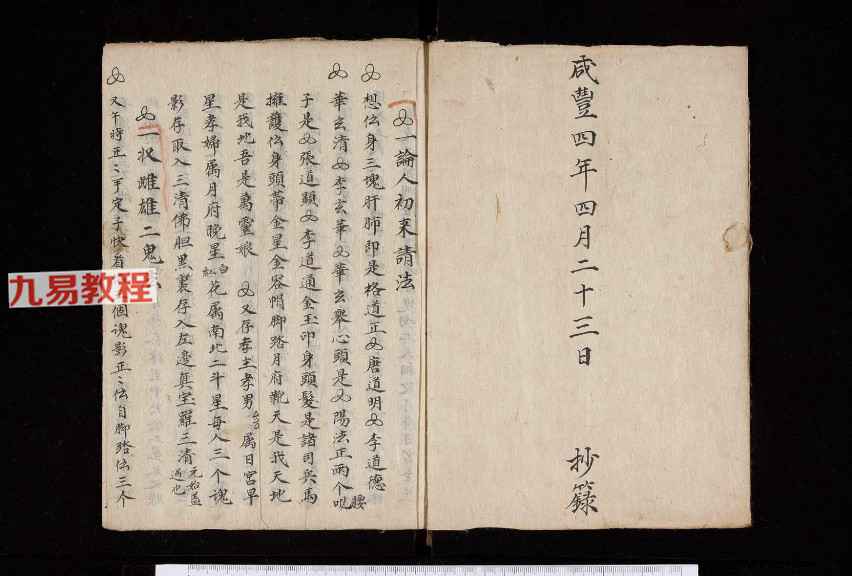 咸豐四年四月二十三日 抄錄
一論人初来請法
想伝身三塊肝肺即是格道正 唐道明 李道德
華玄清 李玄華 華玄舉心頭是 陽法正兩个腰
子是 張道顕 李道通金玉印身頭髮是諸司兵馬
擁護伝身頭帶金星金容帽脚踏月府靴天是我天地
是我地吾是萬靈娘 又存孝主孝男 属日宮早
星孝婦属月府晚星白紅花属南北二斗星每人三个魂
影存取入三清佛胆黒裏存入左邉真室羅三清元始盖
一 雌雄二鬼
又午時正〻手定手 個魂影正〻伝自脚踏伝三个
九易教程